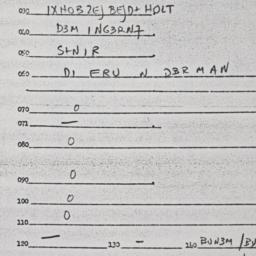 030 IXHOBZEJ BEJD+ HOLT
040 D3M ING3RN7
050 S+NIR
060 DI ERU N D3R MAN
070 0
071 —
080 0
090 0
100 0
110 0
120 — 130 - 140 BUN3M